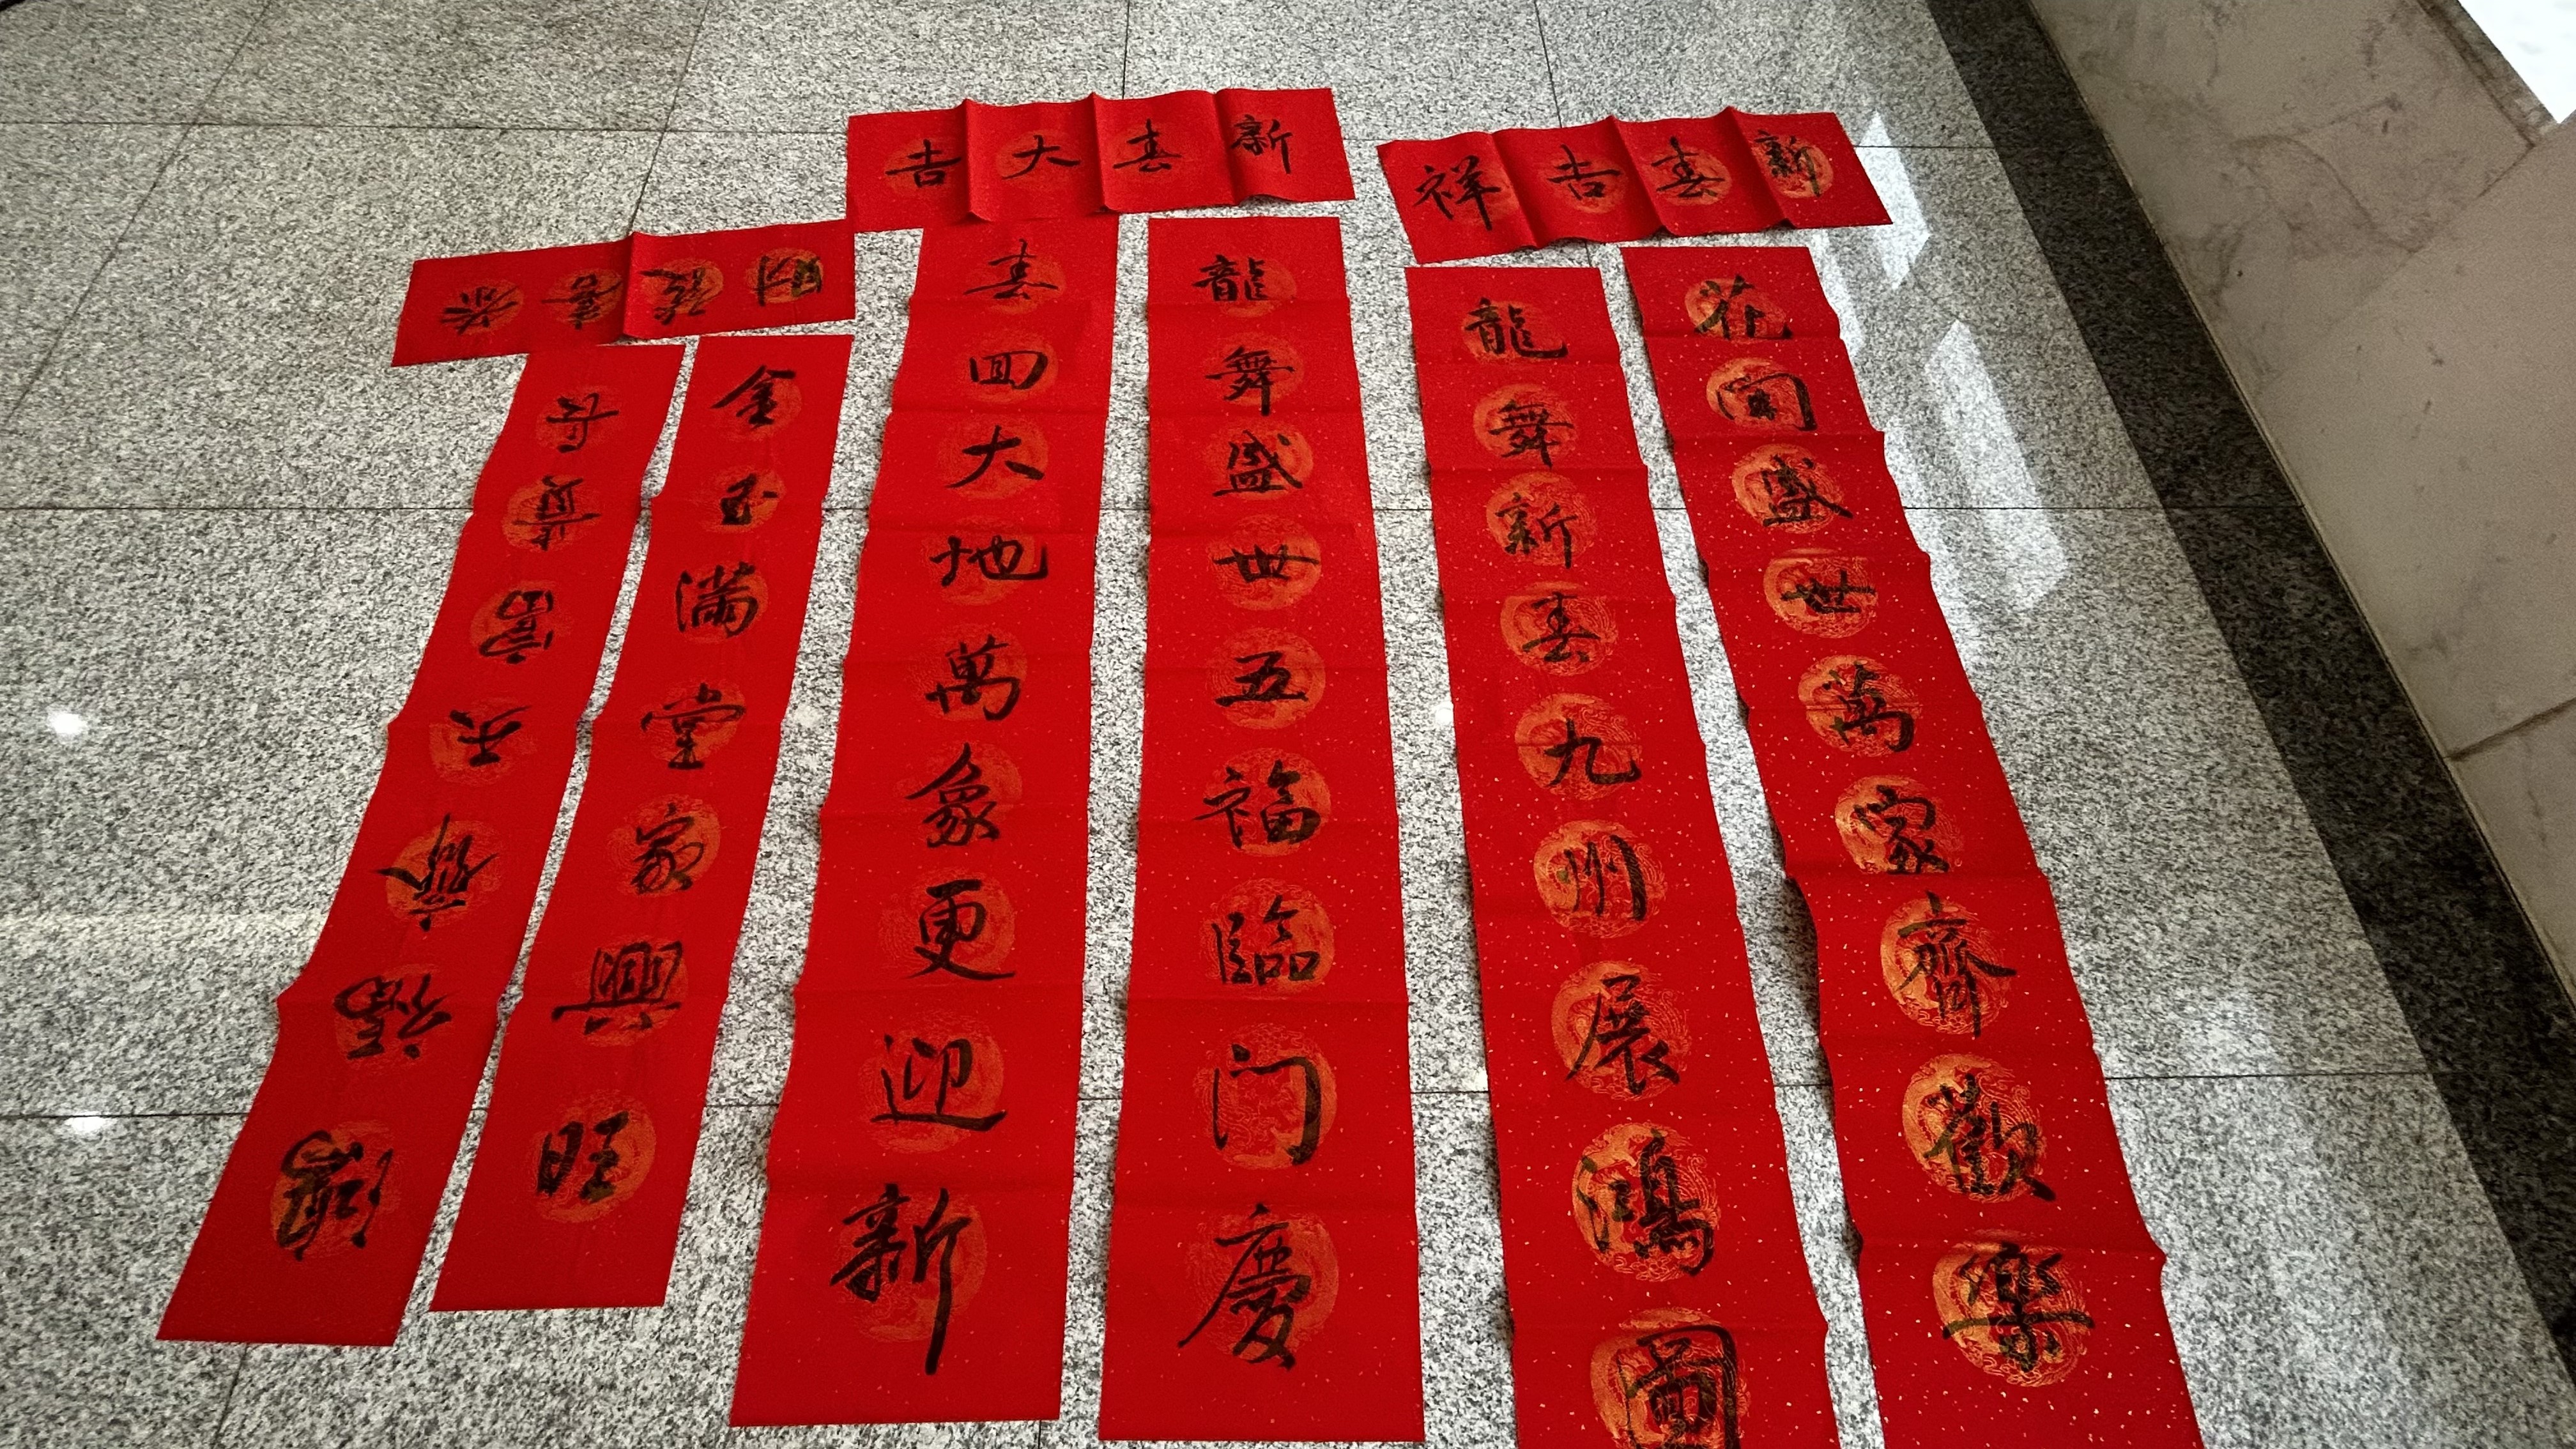 新春吉祥
花開盛世萬家齊歡樂
龍舞新春九州展鴻圖
新春大吉
龍舞盛世五福臨门慶
春回大地萬象更迎新
恭喜發財
金玉滿堂家興旺
鴻福齊天富貴長